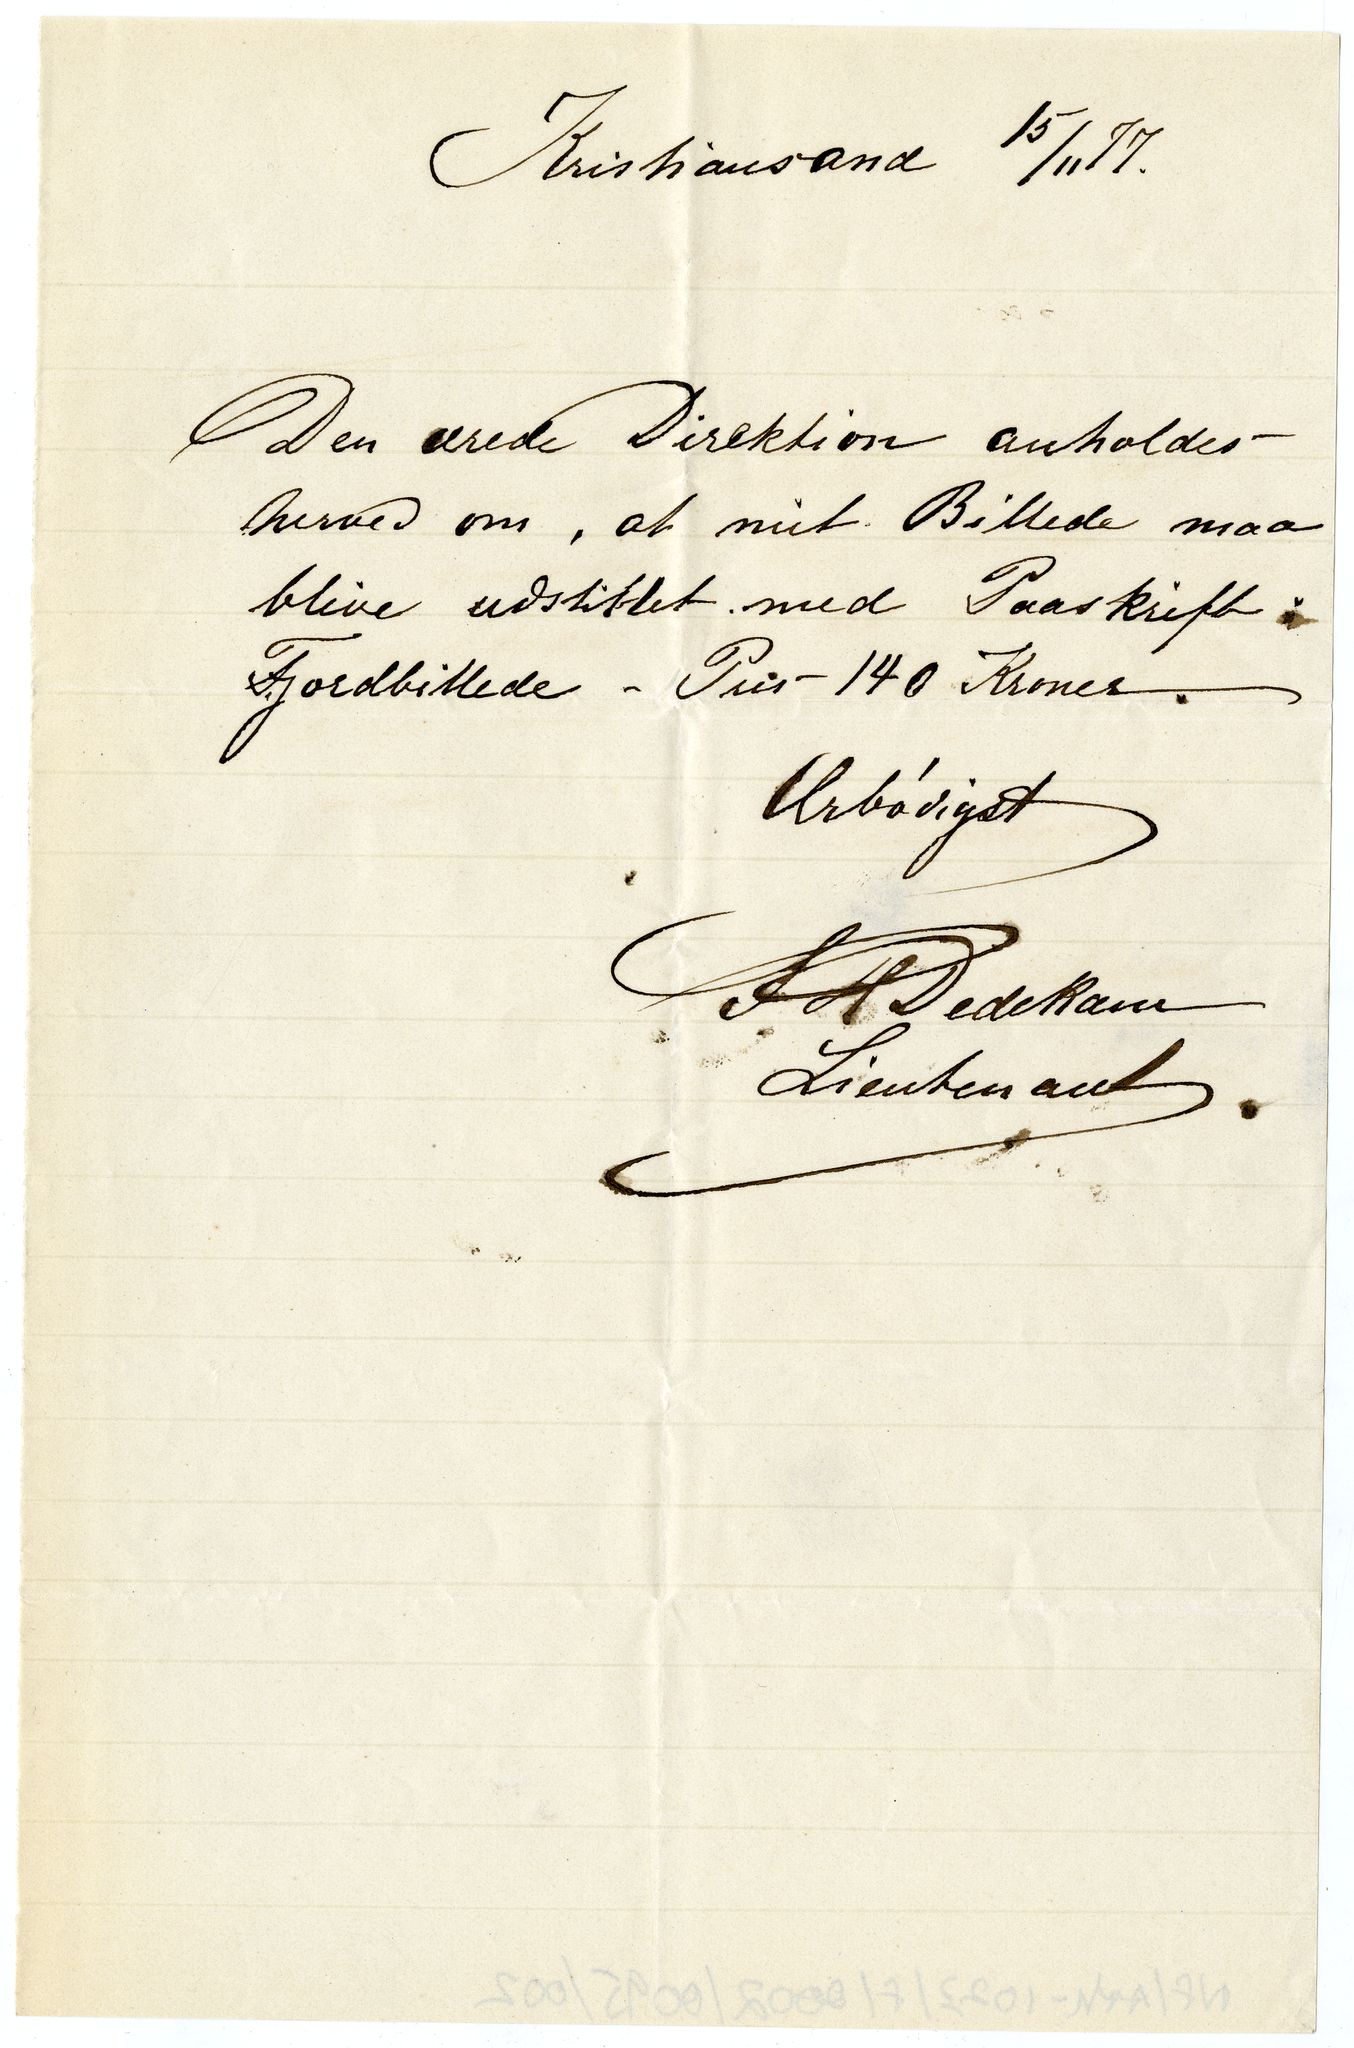 Kristiansand 15/11 77.
Den ærede Direktion anholdes
herved om, at mit Billede maa
blive udstillet med Paaskrift:
Fjordbillede - Pris 140 Kroner.
Ærbødigst
A H Dedekam
Lieutenant.